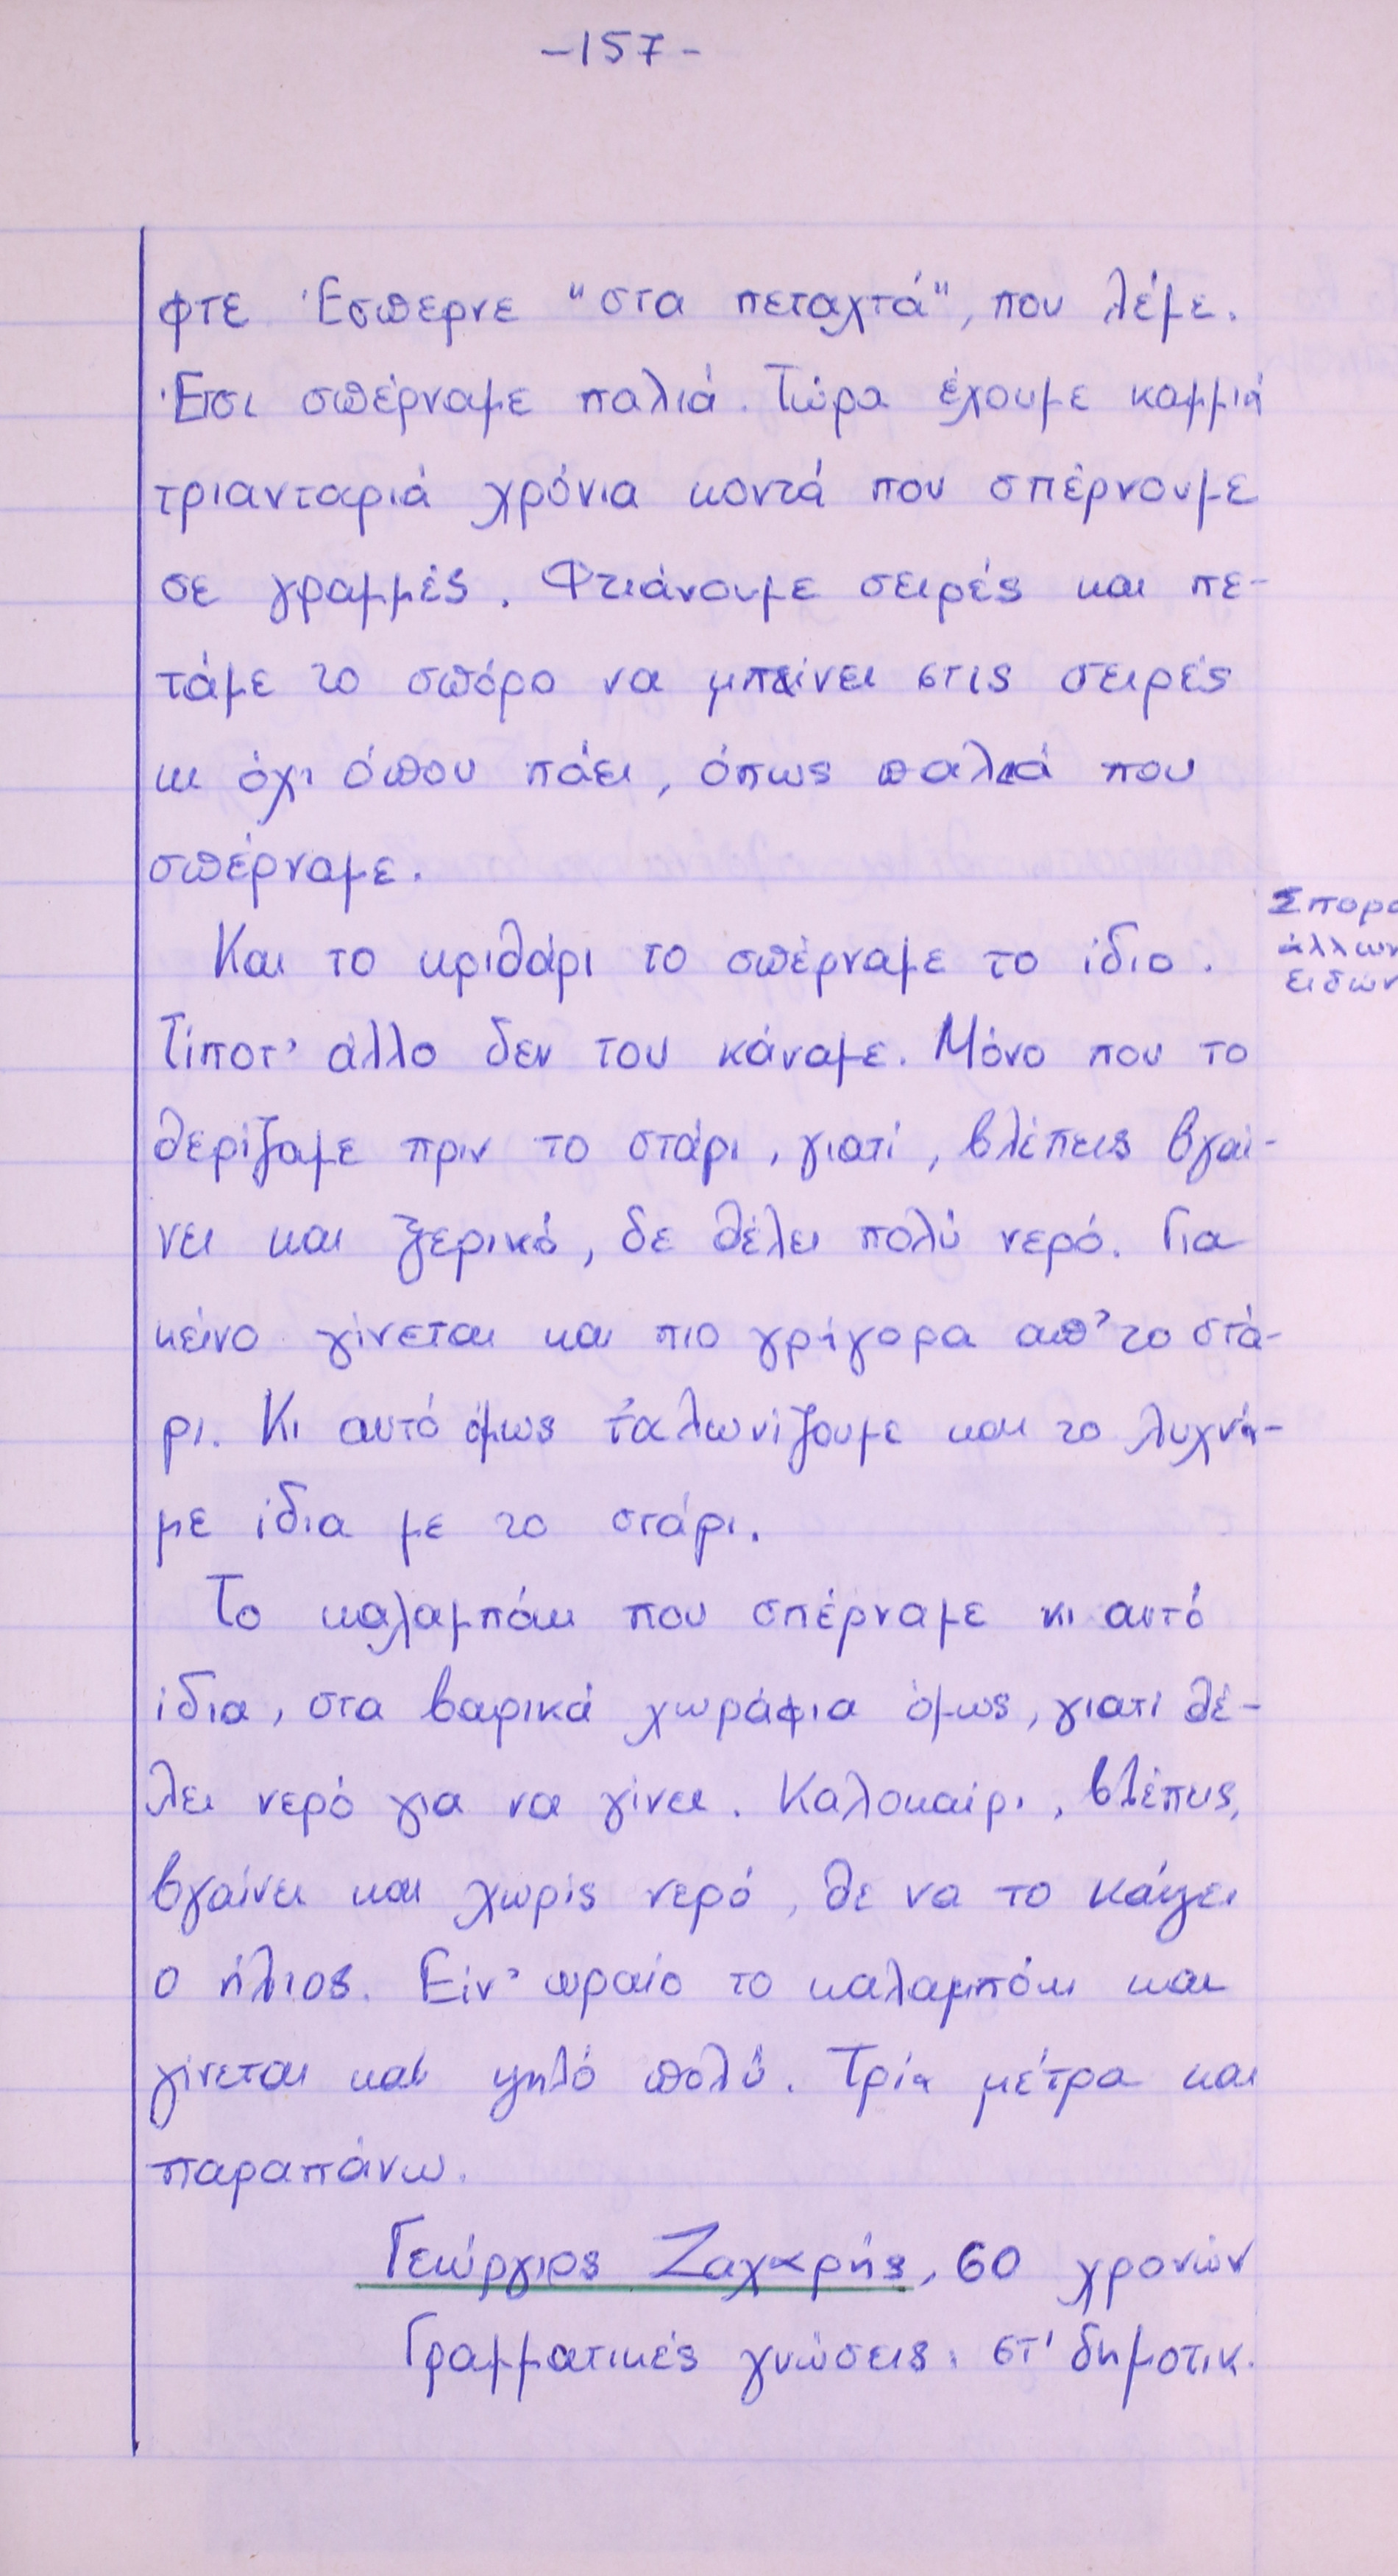 -157-
φτε Έσπερνε "στα πεταχτά", που λέμε.
Έτσι σπέρναμε παλιά. Τώρα έχουμε καμμιά
τριανταριά χρόνια κοντά που σπέρνουμε
σε γραμμές. Φτιάνουμε σειρές και πε-
τάμε το σπόρο να μπαίνει στις σειρές
κι όχι όπου πάει, όπως παλιά που
σπέρναμε.
Σπορά
άλλων
ειδών
Και το κριθάρι το σπέρναμε το ίδιο.
Τίποτ' άλλο δεν του κάναμε. Μόνο που το
θερίζαμε πριν το στάρι, γιατί, βλέπεις βγαί-
νει και ξερικό, δε θέλει πολύ νερό. Για
κείνο γίνεται και πιο γρήγορα απ' το στά-
ρι. Κι αυτό όμως τ'αλωνίζουμε και το λυχνά-
με ίδια με το στάρι.
Το καλαμπόκι που σπέρναμε κι αυτό
ίδια, στα βαρικά χωράφια όμως, γιατί θέ-
λει νερό για να γίνει. Καλοκαίρι, βλέπεις,
βγαίνει και χωρίς νερό, θε να το κάψει
ο ήλιος. Είν' ωραίο το καλαμπόκι και
γίνεται και ψηλό πολύ. Τρία μέτρα και
παραπάνω.
Γεώργιος Ζαχαρής, 60 χρονών
Γραμματικές γνώσεις: στ' δημοτικ.